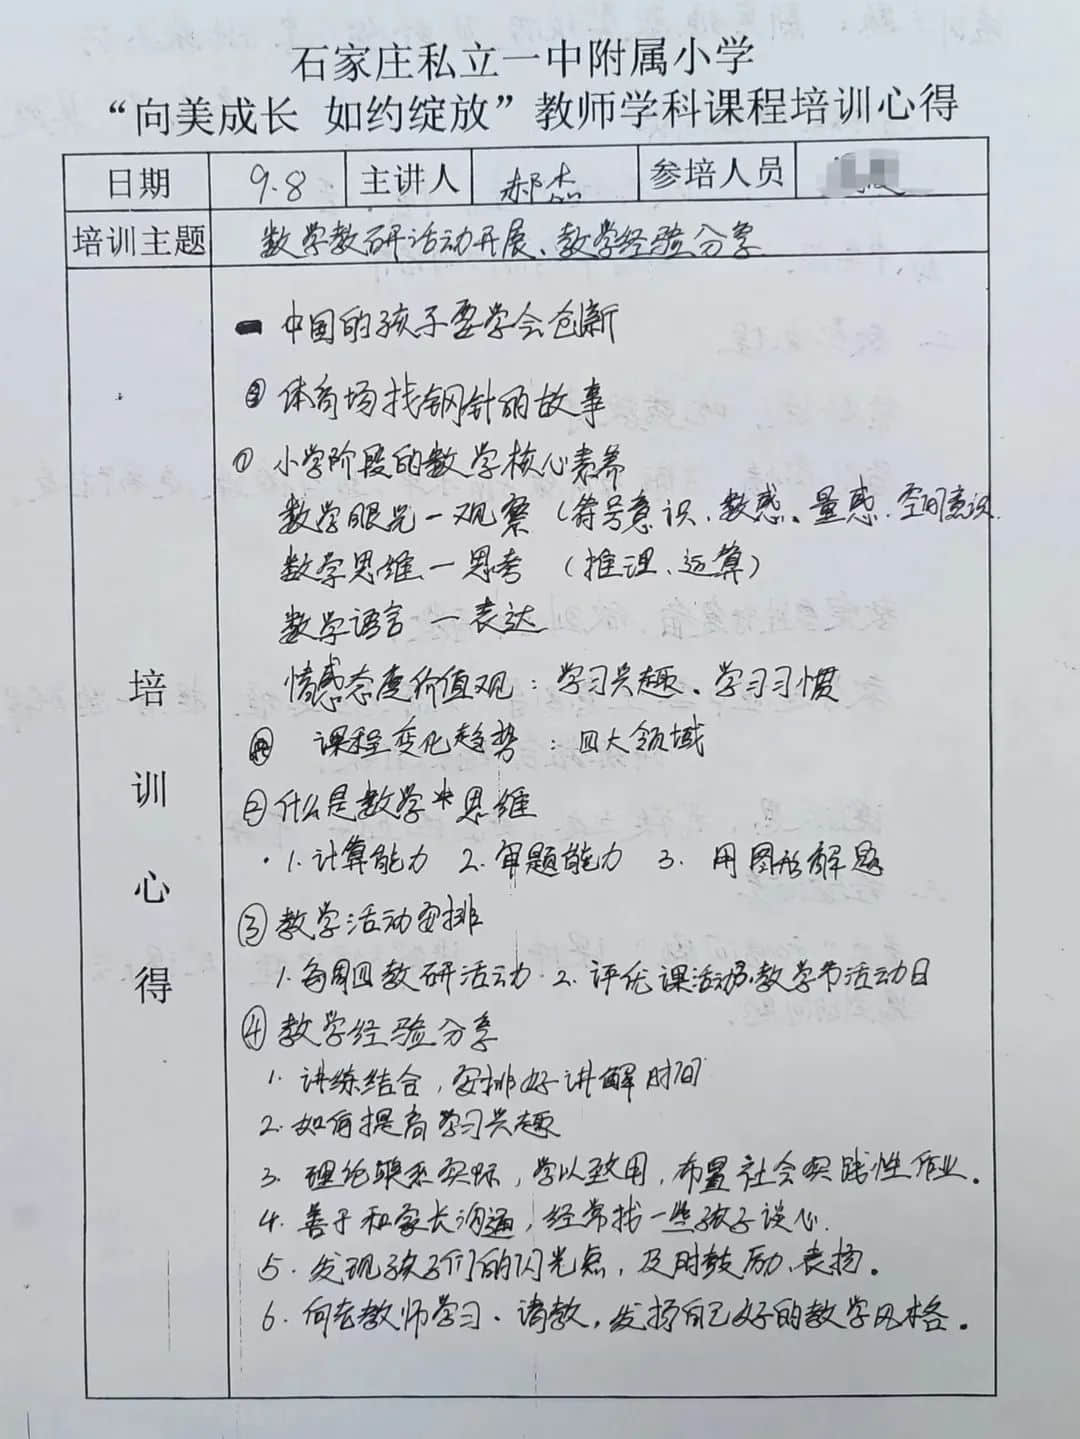 石家庄私立一中附属小学
“向美成长 如约绽放”教师学科课程培训心得
日期 9.8 主讲人 郝杰 参培人员
培训主题 数学教研活动开展、教学经验分享
培训心得
一 中国的孩子要学会创新
体育场找钢针的故事
① 小学阶段的数学核心素养
数学眼光—观察（符号意识、数感、量感、空间意识
数学思维—思考（推理、运算）
数学语言—表达
情感态度价值观：学习兴趣、学习习惯
课程变化趋势：四大领域
② 什么是数学思维
1.计算能力 2.审题能力 3. 用图形解题
③ 教学活动安排
1.每周四教研活动 2.评优课活动 数学节活动日
④ 教学经验分享
1. 讲练结合，安排好讲解时间
2. 如何提高学习兴趣
3. 理论联系实际，学以致用，布置社会实践性作业。
4. 善于和家长沟通，经常找一些孩子谈心.
5. 发现孩子们的闪光点，及时鼓励、表扬。
6. 向老教师学习、请教，发扬自己好的教学风格。